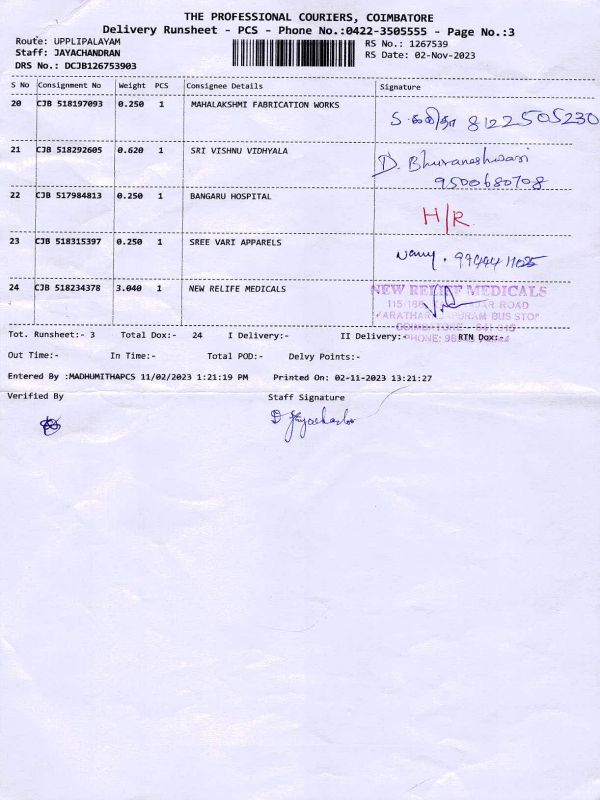 THE PROFESSIONAL COURIERS, COIMBATORE
Delivery Runsheet - PCS - Phone No.:0422-3505555 - Page No.:3
Route: UPPLIPALAYAM RS No.: 1267539
Staff: JAYACHANDRAN RS Date: 02-Nov-2023
DRS No.: DCJB126753903
S No Consignment No Weight PCS Consignee Details Signature
20 CJB 518197093 0.250 1 MAHALAKSHMI FABRICATION WORKS
8122505230
21 CJB 518292605 0.620 1 SRI VISHNU VIDHYALA D. Bhuvaneshwari
9500680708
22 CJB 517984813 0.250 1 BANGARU HOSPITAL
H/R
23 CJB 518315397 0.250 1 SREE VARI APPARELS
24 CJB 518234378 3.040 1 NEW RELIFE MEDICALS NEW RELIEF MEDICALS
ROAD
BUS STOP
Tot. Runsheet:- 3 Total Dox:- 24 I Delivery:- II Delivery:- RTN Dox:-
PHONE:
Out Time:- In Time:- Total POD:- Delvy Points:-
Entered By :MADHUMITHAPCS 11/02/2023 1:21:19 PM Printed On: 02-11-2023 13:21:27
Verified By Staff Signature